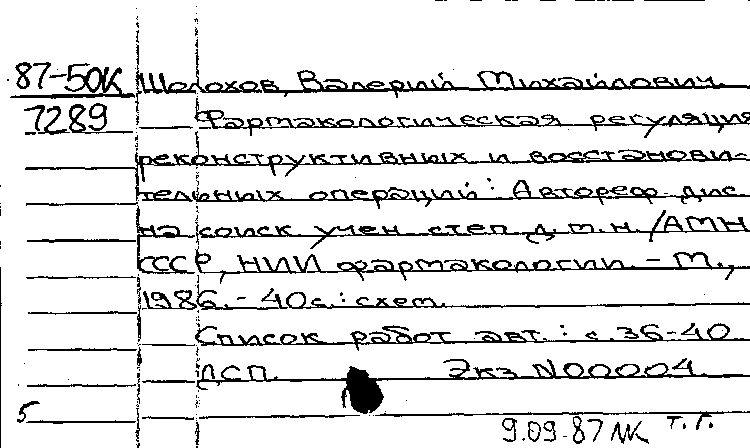 87-50К Шолохов, Валерий Михайлович.
7289 Фармакологическая регуляция
реконструктивных и восстанови-
тельных операций: Автореф. дис.
на соиск. учен. степ. д.т.н. /АМН
СССР, НИИ фармакологии. - М.,
1986. - 40с.: схем.
Список работ авт.: с. 36-40
ДСП. Экз N00004.
5
9.09.87 Т.Г.